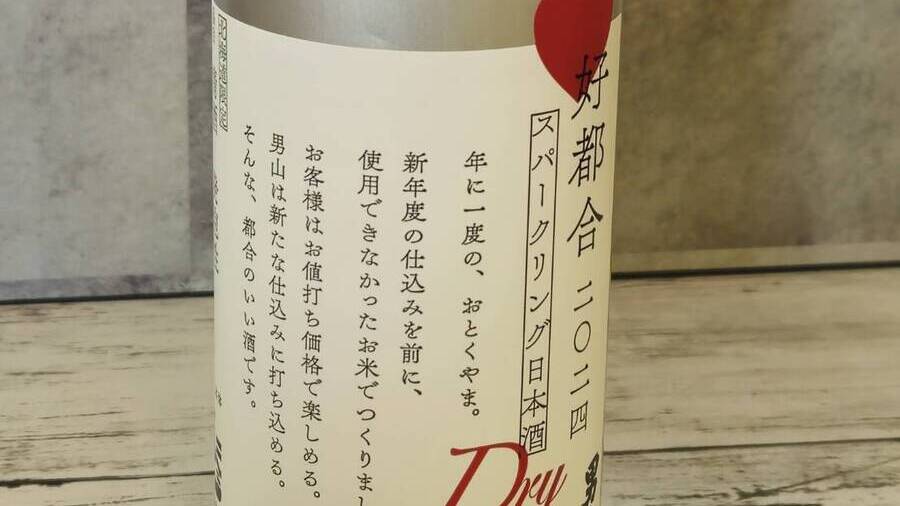 好都合 二〇二四
スパークリング日本酒
年に一度の、おとくやま。
新年度の仕込みを前に、
使用できなかったお米でつくりまし
お客様はお値打ち価格で楽しめる。
男山は新たな仕込みに打ち込める。
そんな、都合のいい酒です。
北海道限定
Dry
男